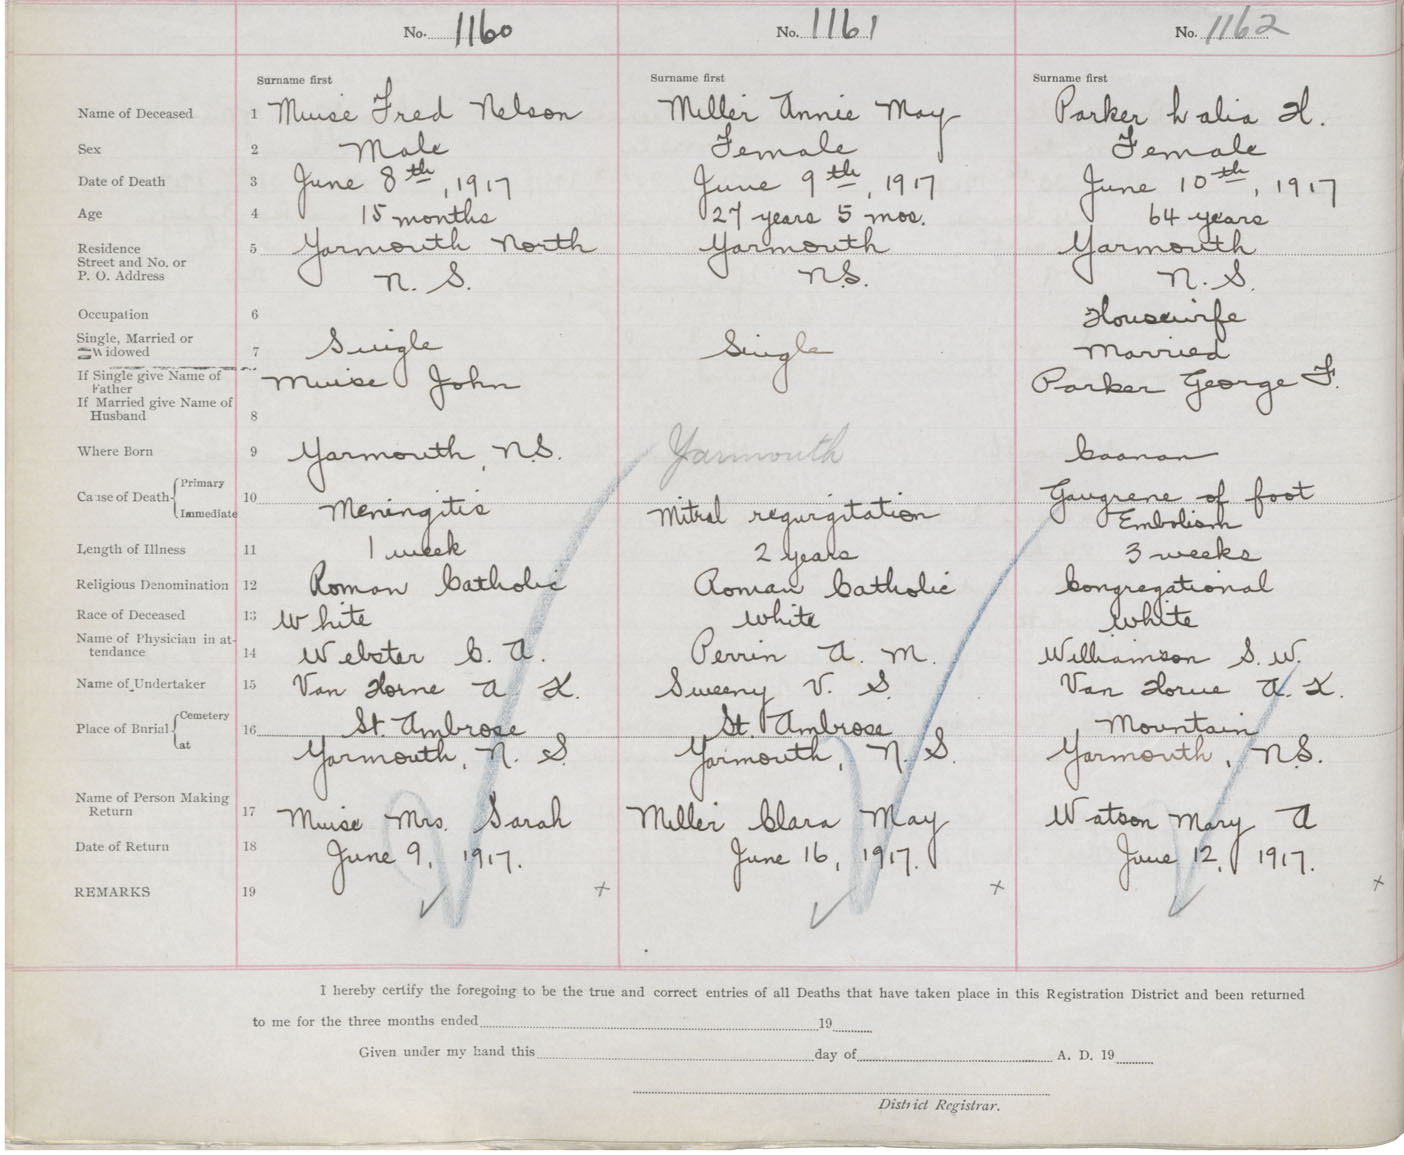 No. 1160 No. 1161 No. 1162
Surname first Surname first Surname first
Name of Deceased 1 Muise Fred Nelson Miller Annie May Parker H.
Sex 2 Male Female Female
Date of Death 3 June 8th, 1917 June 9th, 1917 June 10th, 1917
Age 4 15 months 27 years 5 mos. 64 years
Residence 5 Yarmouth North Yarmouth Yarmouth
Street and No. or
P. O. Address N. S. N.S. N. S.
Occupation 6 Housewife
Single, Married or
Widowed 7 Single Single Married
If Single give Name of Muise John Parker George F.
Father
If Married give Name of
Husband 8
Where Born 9 Yarmouth, N.S. Yarmouth Canaan
Cause of Death Primary 10 Gangrene of foot
Immediate Meningitis Mitral regurgitation Embolism
Length of Illness 11 1 week 2 years 3 weeks
Religious Denomination 12 Roman Catholic Roman Catholic Congregational
Race of Deceased 13 White White White
Name of Physician in at-
tendance 14 Webster C. A. Perrin A. M. Williamson S. W.
Name of Undertaker 15 Van Horne A. K. Sweeny V. S. Van Horne A. K.
Place of Burial Cemetery 16 St. Ambrose St. Ambrose Mountain
at Yarmouth, N. S. Yarmouth, N. S. Yarmouth, N.S.
Name of Person Making
Return 17 Muise Mrs. Sarah Miller Clara May Watson Mary A
Date of Return 18 June 9, 1917. June 16, 1917. June 12, 1917.
REMARKS 19 x x x
I hereby certify the foregoing to be the true and correct entries of all Deaths that have taken place in this Registration District and been returned
to me for the three months ended 19
Given under my hand this day of A. D. 19
District Registrar.